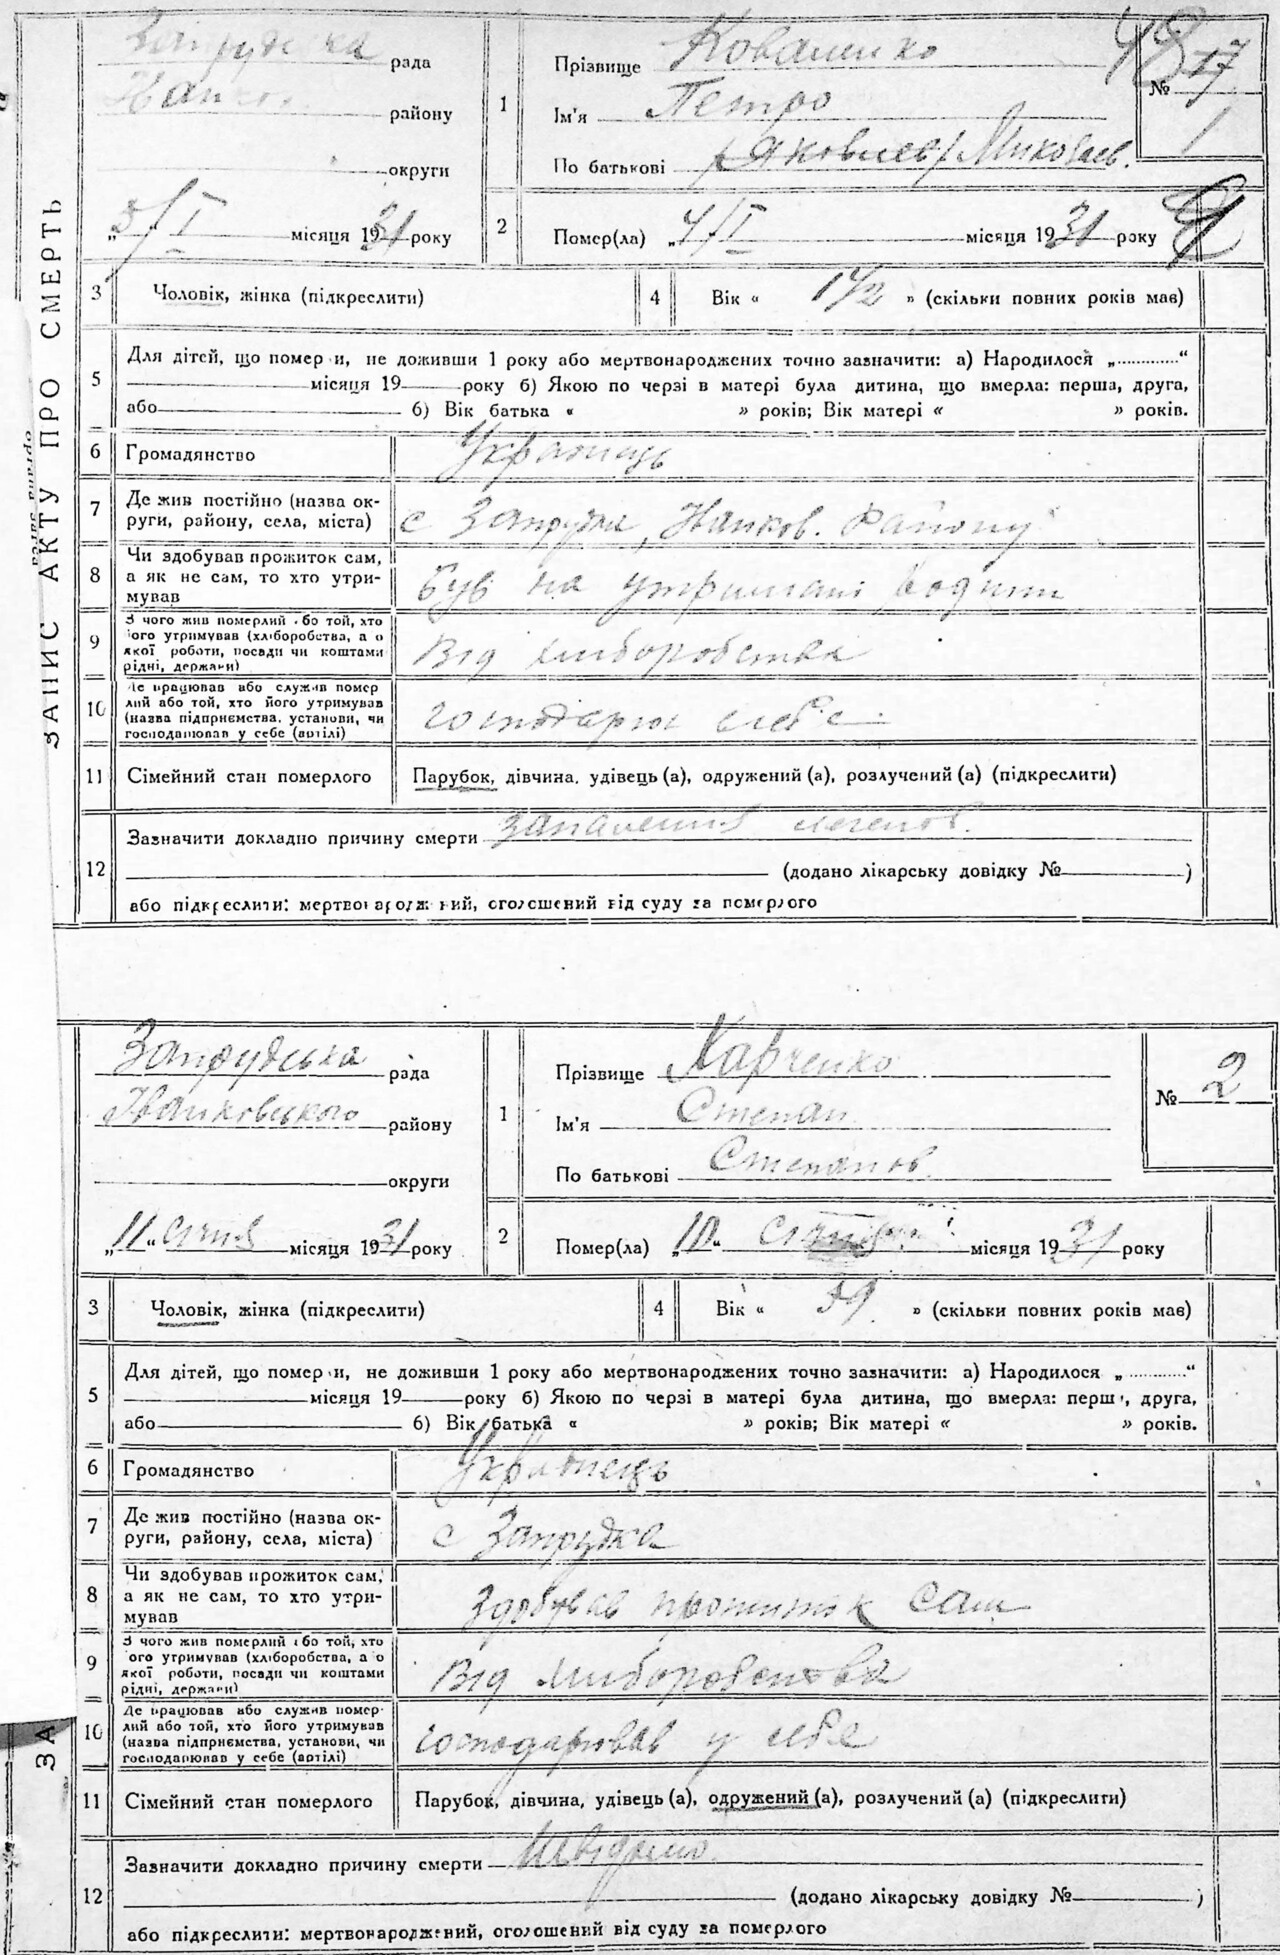 ЗАПИС АКТУ ПРО СМЕРТЬ
Запрудська рада
району
округи
"5/I" місяця 1931 року
1
Прізвище Коваленко
Ім'я Петро
По батькові /Яковлев/ Миколаев.
№ 1
2
Помер(ла) "4/I місяця 1931 року
3 Чоловік, жінка (підкреслити)
4 Вік « 1 1/2 » (скільки повних років мав)
5 Для дітей, що помер и, не доживши 1 року або мертвонароджених точно зазначити: а) Народилося „............“
місяця 19 року б) Якою по черзі в матері була дитина, що вмерла: перша, друга,
або б) Вік батька « » років; Вік матері « » років.
6 Громадянство Українець
7 Де жив постійно (назва ок-
руги, району, села, міста) с Запрудка, Іванков. Району
8 Чи здобував прожиток сам,
а як не сам, то хто утри-
мував був на утримані родини
9 З чого жив померлий або той, хто
його утримував (хліборобства, а о
якої роботи, посади чи коштами
рідні, держави) Від хліборобства
10 Де працював або служив помер
лий або той, хто його утримував
(назва підприємства, установи, чи
господарював у себе (артілі) господарює себе
11 Сімейний стан померлого Парубок, дівчина, удівець (а), одружений (а), розлучений (а) (підкреслити)
12 Зазначити докладно причину смерти запалення легенів.
(додано лікарську довідку № )
або підкреслити: мертвонароджений, оголошений від суду за померлого
ЗА
Запрудська рада
Іванковського району
округи
„11“ січня місяця 1931 року
1
Прізвище Харченко
Ім'я Степан
По батькові Степанов.
№ 2
2
Помер(ла) „10“ січня місяця 1931 року
3 Чоловік, жінка (підкреслити)
4 Вік « 59 » (скільки повних років мав)
5 Для дітей, що помер и, не доживши 1 року або мертвонароджених точно зазначити: а) Народилося „............“
місяця 19 року б) Якою по черзі в матері була дитина, що вмерла: перш , друга,
або б) Вік батька « » років; Вік матері « » років.
6 Громадянство Українець
7 Де жив постійно (назва ок-
руги, району, села, міста) с Запрудка
8 Чи здобував прожиток сам,
а як не сам, то хто утри-
мував Здобував прожиток сам
9 З чого жив померлий або той, хто
його утримував (хліборобства, а о
якої роботи, посади чи коштами
рідні, держави) Від хліборобства
10 Де працював або служив помер-
лий або той, хто його утримував
(назва підприємства, установи, чи
господарював у себе (артілі) господарював у себе
11 Сімейний стан померлого Парубок, дівчина, удівець (а), одружений (а), розлучений (а) (підкреслити)
12 Зазначити докладно причину смерти Невідомо.
(додано лікарську довідку № )
або підкреслити: мертвонароджений, оголошений від суду за померлого